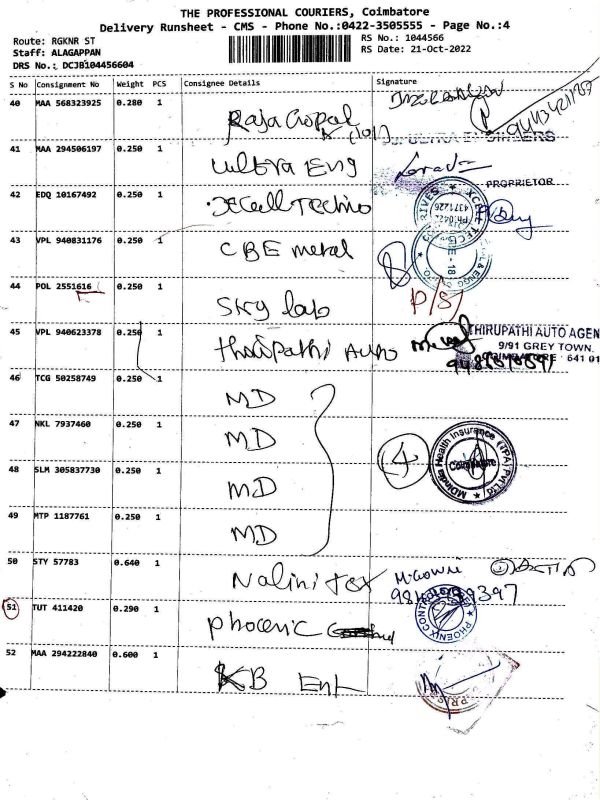 THE PROFESSIONAL COURIERS, Coimbatore
Delivery Runsheet - CMS - Phone No.:0422-3505555 - Page No.:4
Route: RGKNR ST
Staff: ALAGAPPAN
DRS No.: DCJB104456604
RS No.: 1044566
RS Date: 21-Oct-2022
S No Consignment No Weight PCS Consignee Details Signature
40 MAA 568323925 0.280 1 Raja Gopal
41 MAA 294506197 0.250 1 Ultra Eng
PROPRIETOR
42 EDQ 10167492 0.250 1 Xcell Techno
43 VPL 940831176 0.250 1 CBE metal
44 POL 2551616 0.250 1 Sky lab P/S
45 VPL 940623378 0.250 1 Thirupathi Auto
THIRUPATHI AUTO AGEN
9/91 GREY TOWN.
COIMBATORE 641 01
46 TCG 50258749 0.250 1 MD
47 NKL 7937460 0.250 1 MD
4
MDIndia Health Insurance (TPA) Pvt Ltd
Coimbatore
48 SLM 305837730 0.250 1 MD
49 MTP 1187761 0.250 1 MD
50 STY 57783 0.640 1 Nalini Tex M.Gowri
51 TUT 411420 0.290 1 Phoenic
52 MAA 294222840 0.600 1 KB Ent